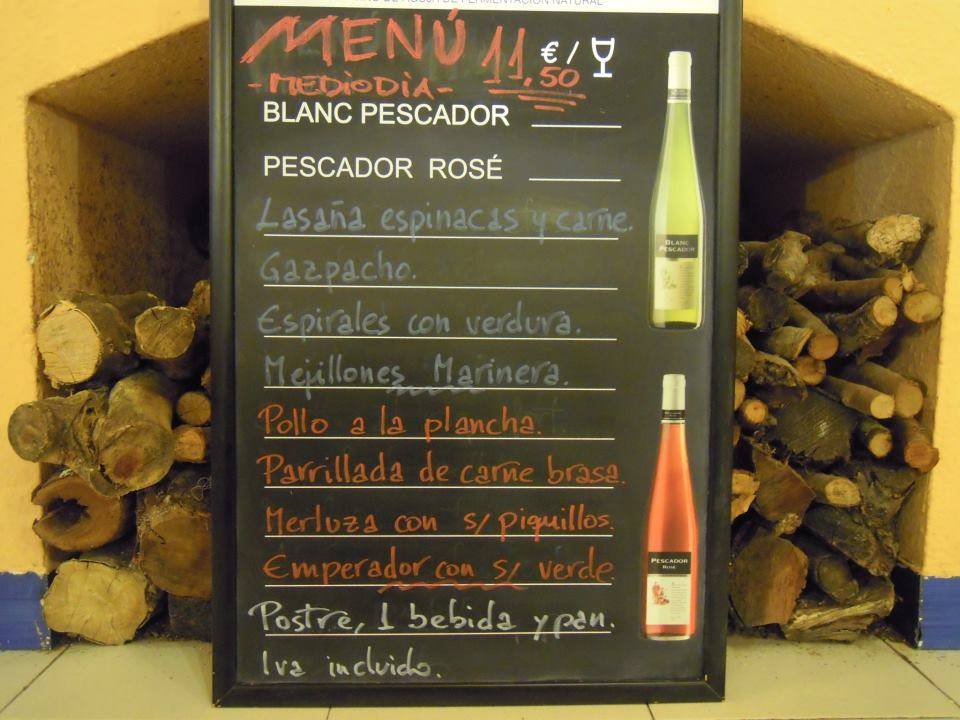 VINO DE AGUJA DE FERMENTACIÓN NATURAL
MENÚ 11,50 € /
-MEDIODIA-
BLANC PESCADOR
PESCADOR ROSÉ
Lasaña espinacas y carne.
Gazpacho.
Espirales con verdura.
Mejillones Marinera.
Pollo a la plancha.
Parrillada de carne brasa.
Merluza con s/ piquillos.
Emperador con s/ verde.
Postre, 1 bebida y pan.
Iva incluido.
BLANC
PESCADOR
PESCADOR
ROSÉ